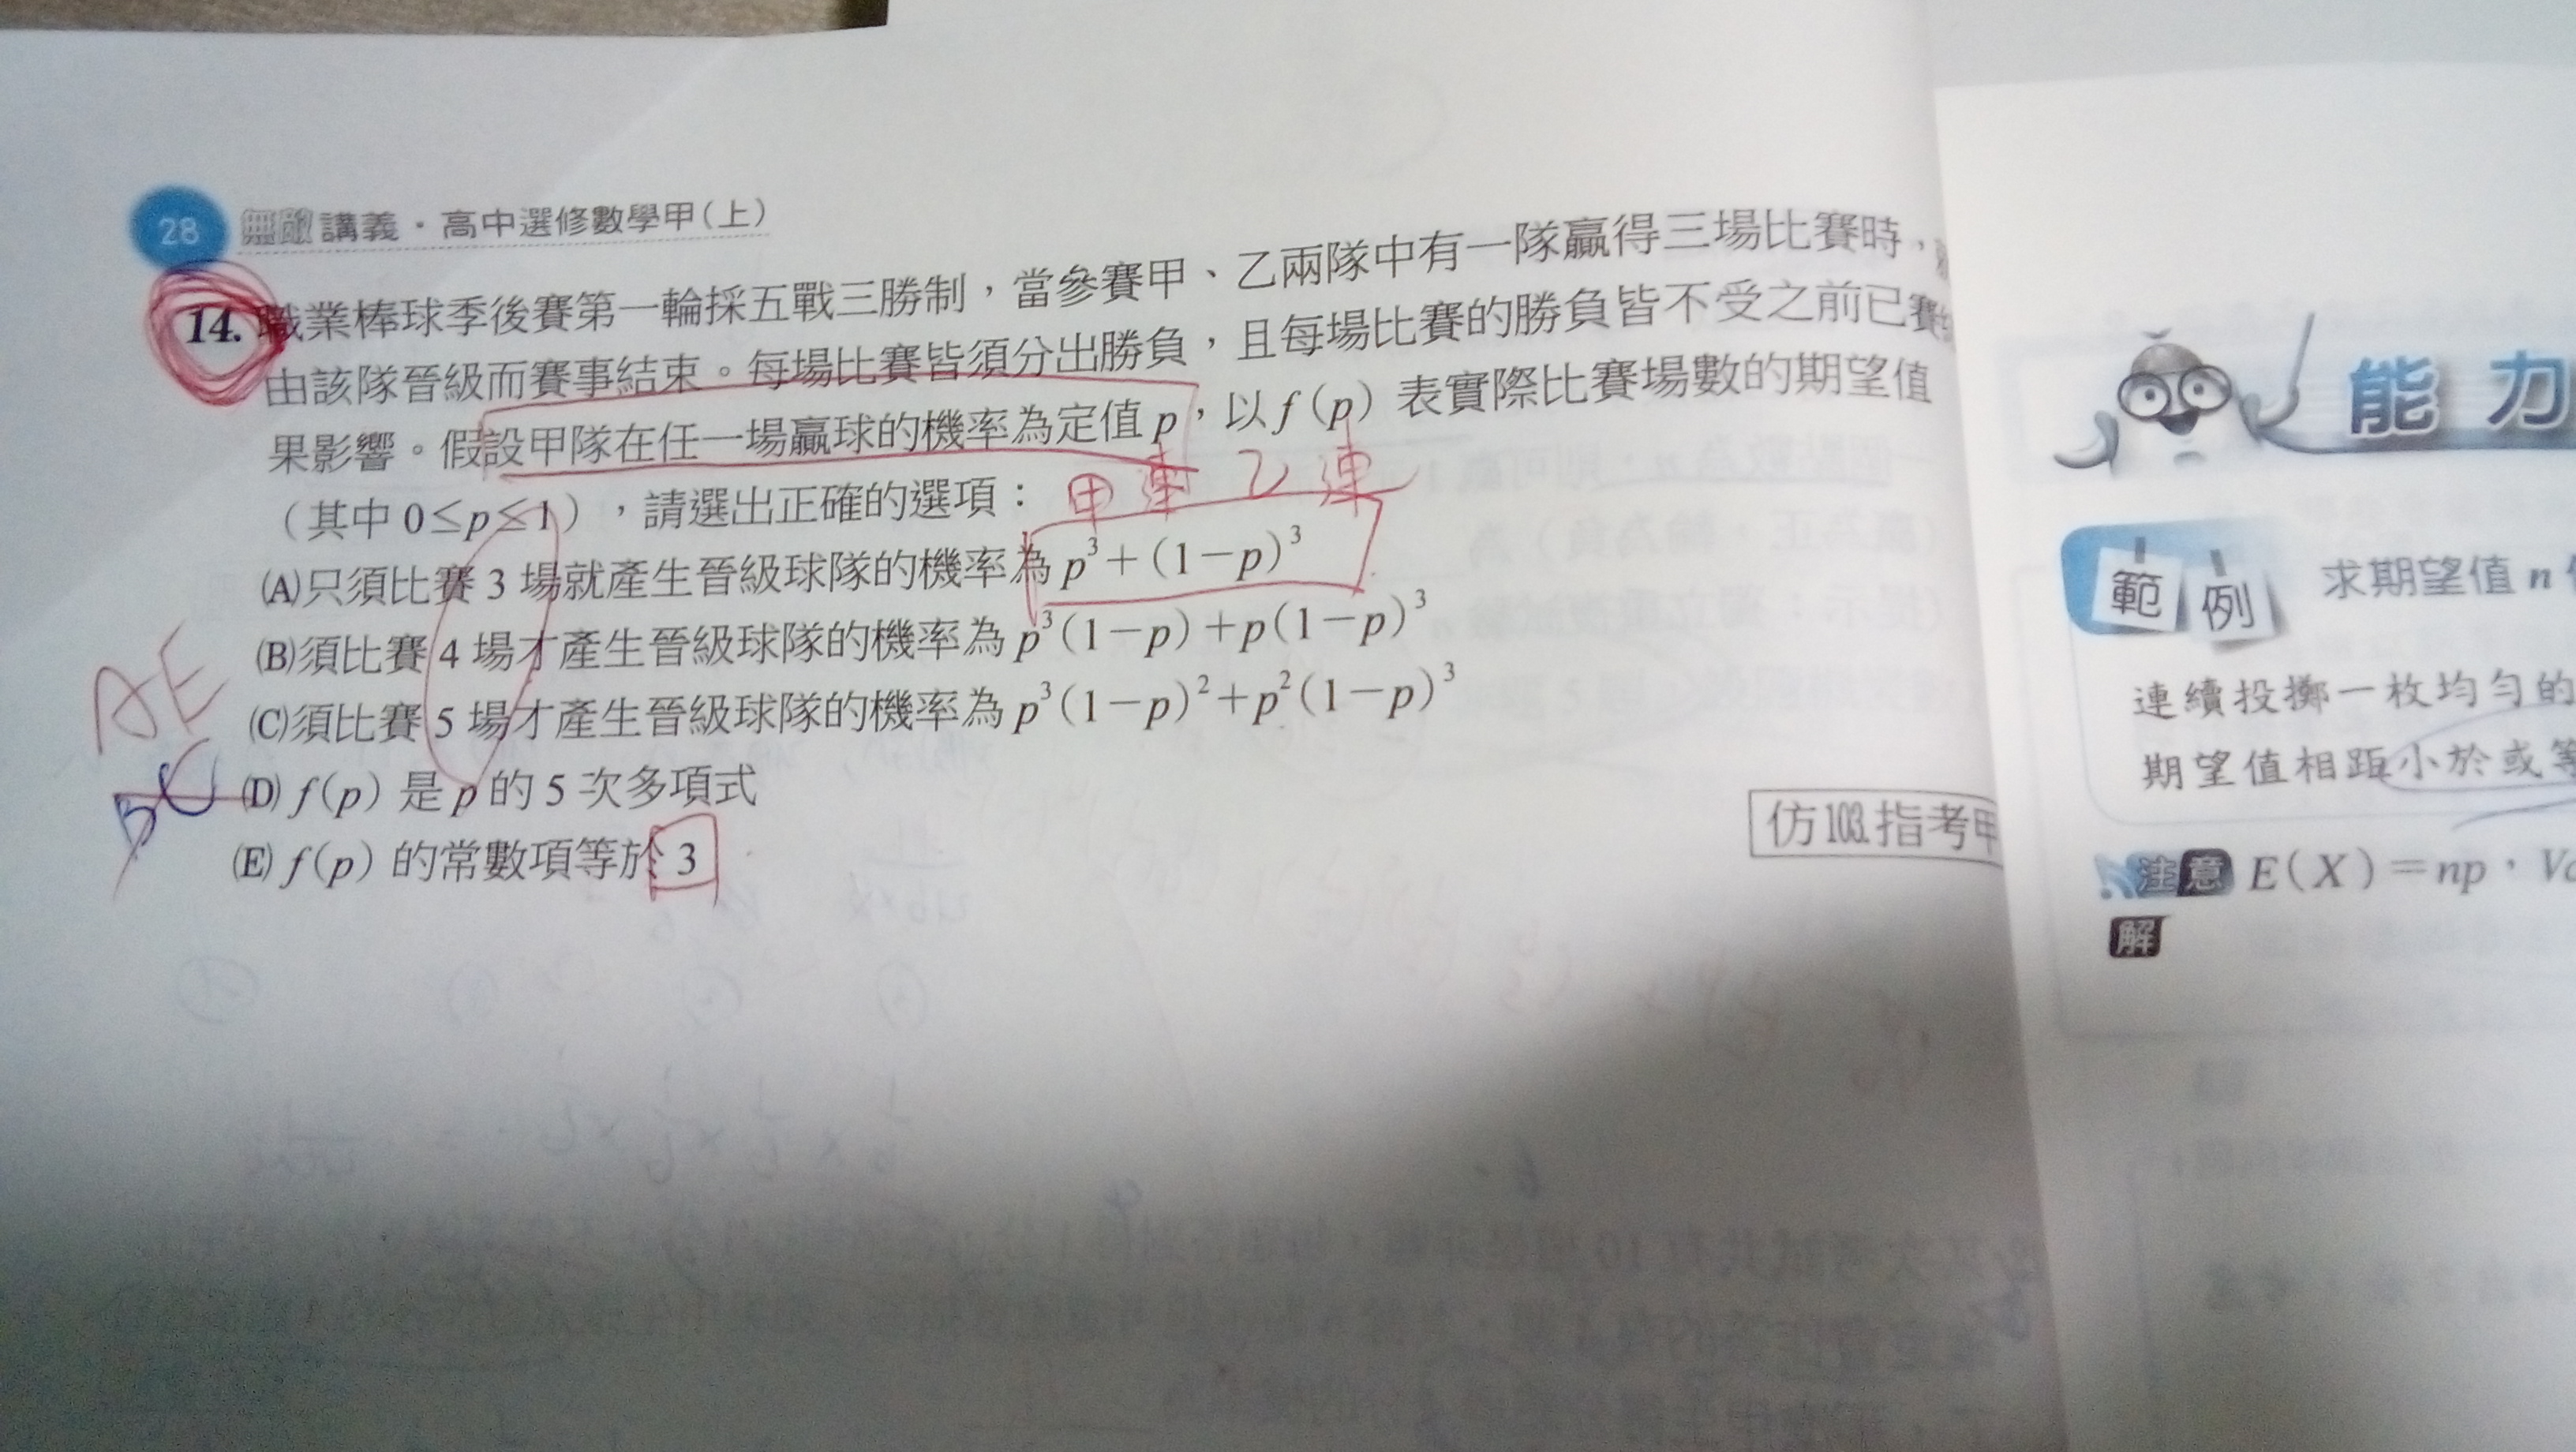 28 無敵講義・高中選修數學甲(上)
14. 職業棒球季後賽第一輪採五戰三勝制，當參賽甲、乙兩隊中有一隊贏得三場比賽時，
由該隊晉級而賽事結束。每場比賽皆須分出勝負，且每場比賽的勝負皆不受之前已賽
果影響。假設甲隊在任一場贏球的機率為定值 p，以 f(p) 表實際比賽場數的期望值
（其中 0≤p≤1），請選出正確的選項：
甲連 乙連
(A)只須比賽 3 場就產生晉級球隊的機率為 p³+(1−p)³
(B)須比賽 4 場才產生晉級球隊的機率為 p³(1−p)+p(1−p)³
(C)須比賽 5 場才產生晉級球隊的機率為 p³(1−p)²+p²(1−p)³
(D) f(p) 是 p 的 5 次多項式
(E) f(p) 的常數項等於 3
AE
仿 103.指考甲
能力
範例 求期望值 n
連續投擲一枚均勻的
期望值相距小於或等
注意 E(X)=np，V
解